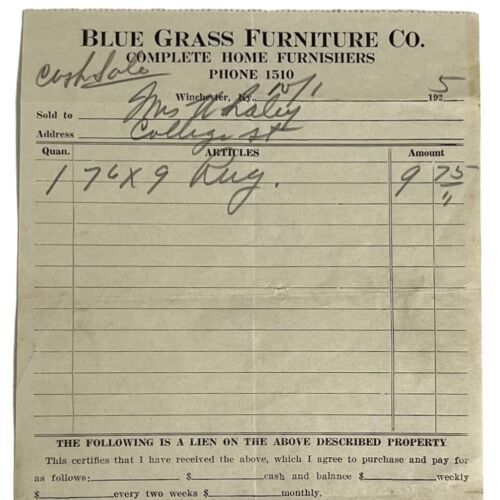 BLUE GRASS FURNITURE CO.
COMPLETE HOME FURNISHERS
PHONE 1510
Cash Sale
Winchester, Ky., 10/1 1925
Sold to Mrs Whaley
Address College st
Quan. ARTICLES Amount
1 76 X 9 Rug. 9 75
THE FOLLOWING IS A LIEN ON THE ABOVE DESCRIBED PROPERTY
This certifies that I have received the above, which I agree to purchase and pay for
as follows: $ cash and balance $ weekly
$ every two weeks $ monthly.